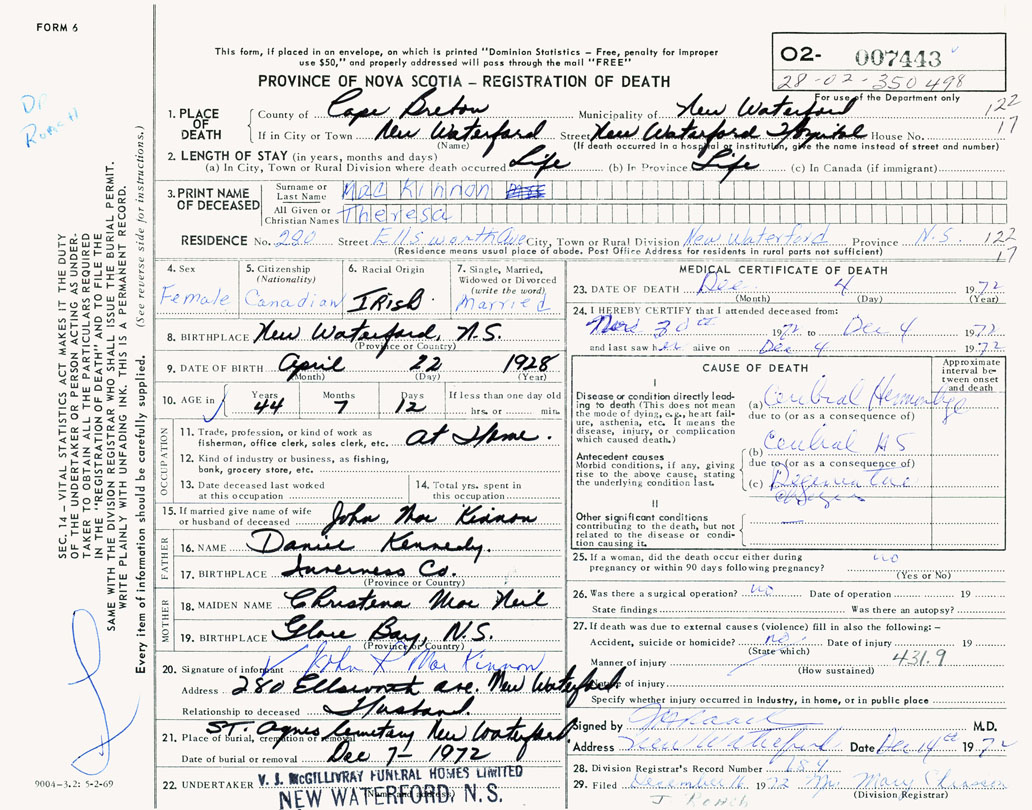 FORM 6
This form, if placed in an envelope, on which is printed "Dominion Statistics – Free, penalty for improper
use $50," and properly addressed will pass through the mail "FREE"
PROVINCE OF NOVA SCOTIA – REGISTRATION OF DEATH
O2- 007443
28-02-350498
For use of the Department only
DR
122
17
1. PLACE OF DEATH County of Cape Breton Municipality of New Waterford
If in City or Town New Waterford Street New Waterford Hospital House No.
(Name) (If death occurred in a hospital or institution, give the name instead of street and number)
2. LENGTH OF STAY (in years, months and days)
(a) In City, Town or Rural Division where death occurred Life (b) In Province Life (c) In Canada (if immigrant)
3. PRINT NAME OF DECEASED Surname or Last Name MacKinnon
All Given or Christian Names Theresa
RESIDENCE No. 280 Street Ellsworth Ave City, Town or Rural Division New Waterford Province N.S.
122
17
(Residence means usual place of abode. Post Office Address for residents in rural parts not sufficient)
4. Sex Female
5. Citizenship (Nationality) Canadian
6. Racial Origin IRish.
7. Single, Married, Widowed or Divorced (write the word) Married
8. BIRTHPLACE New Waterford, N.S.
(Province or Country)
9. DATE OF BIRTH April 22 1928
(Month) (Day) (Year)
10. AGE in Years 44 Months 7 Days 12 If less than one day old hrs. or min.
OCCUPATION
11. Trade, profession, or kind of work as fisherman, office clerk, sales clerk, etc. at Home.
12. Kind of industry or business, as fishing, bank, grocery store, etc.
13. Date deceased last worked at this occupation
14. Total yrs. spent in this occupation
15. If married give name of wife or husband of deceased John Mac Kinnon
FATHER
16. NAME Daniel Kennedy.
17. BIRTHPLACE Inverness Co.
(Province or Country)
MOTHER
18. MAIDEN NAME Christena Mac Neil
19. BIRTHPLACE Glace Bay, N.S.
(Province or Country)
20. Signature of informant John X Mac Kinnon
Address 280 Ellsworth ave. New Waterford
Relationship to deceased Husband.
21. Place of burial, cremation or removal ST. Agnes Cemetary New Waterford
Date of burial or removal Dec 7 - 1972
22. UNDERTAKER V. J. McGILLIVRAY FUNERAL HOMES LIMITED
(Name and address)
NEW WATERFORD, N.S.
MEDICAL CERTIFICATE OF DEATH
23. DATE OF DEATH Dec 4 1972
(Month) (Day) (Year)
24. I HEREBY CERTIFY that I attended deceased from:
1972 to Dec 4 1972
and last saw her alive on Dec 4 1972
CAUSE OF DEATH
Approximate interval between onset and death
I
Disease or condition directly leading to death (This does not mean the mode of dying, e.g., heart failure, asthenia, etc. It means the disease, injury, or complication which caused death.)
(a) Cerebral Hemorrhage
due to (or as a consequence of)
Antecedent causes
Morbid conditions, if any, giving rise to the above cause, stating the underlying condition last.
(b) Cerebral AS
due to (or as a consequence of)
(c) Degenerative
II
Other significant conditions contributing to the death, but not related to the disease or condition causing it.
25. If a woman, did the death occur either during pregnancy or within 90 days following pregnancy? no
(Yes or No)
26. Was there a surgical operation? no Date of operation 19
State findings Was there an autopsy?
27. If death was due to external causes (violence) fill in also the following:–
Accident, suicide or homicide? no Date of injury 19
(State which)
Manner of injury 431.9
(How sustained)
Nature of injury
Specify whether injury occurred in industry, in home, or in public place
Signed by M.D.
Address New Waterford Date Dec 14th 1972
28. Division Registrar's Record Number 184
29. Filed December 16 1972 Mrs. Mary
(Division Registrar)
J Roach
SEC. 14 – VITAL STATISTICS ACT MAKES IT THE DUTY
OF THE UNDERTAKER OR PERSON ACTING AS UNDER-
TAKER TO OBTAIN ALL THE PARTICULARS REQUIRED
IN THE "REGISTRATION OF DEATH" AND TO FILE THE
SAME WITH THE DIVISION REGISTRAR WHO SHALL ISSUE THE BURIAL PERMIT.
WRITE PLAINLY WITH UNFADING INK. THIS IS A PERMANENT RECORD.
Every item of information should be carefully supplied. (See reverse side for instructions.)
9004-3.2: 5-2-69